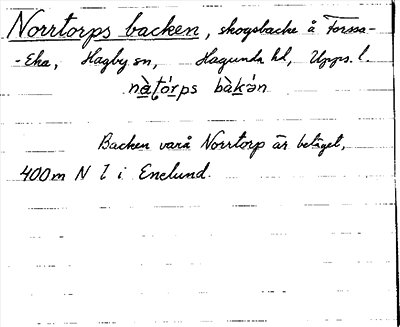 Norrtorps backen, skogsbacke å Forssa-
-Eka, Hagby sn, Hagunda hd, Upps. l.
nàtórps bàkən
Backen varå Norrtorp är beläget,
400 m N l i Enelund.